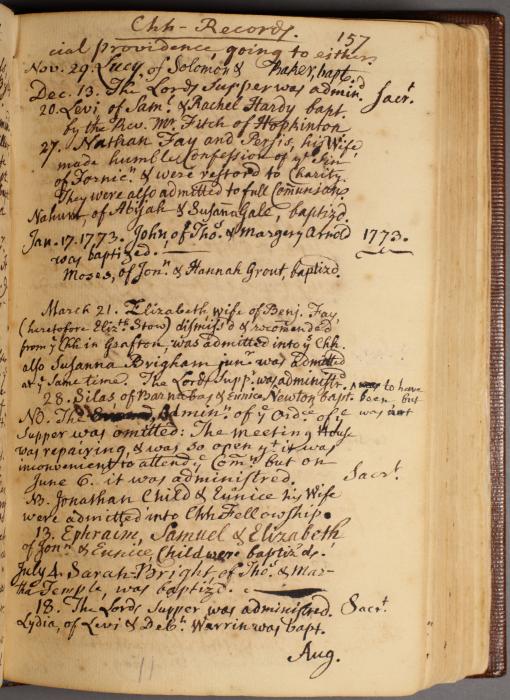 Chh-Records. 157
cial providence going to either.
Nov. 29. Lucy, of Solomon & Baker, bapt.
Dec. 13. The Lords Supper was admin.d Sacrt.
20. Levi of Sam.l & Rachel Hardy bapt.
by the Rev. Mr. Fitch of Hopkinton
27. Nathan Fay and Persis, his Wife
made humble Confession of ye Sin
of Fornic.n & were restor'd to Charity.
They were also admitted to full Comunion.
Nahum, of Abijah & Susanna Gale, baptiz'd.
Jan. 17. 1773. John, of Tho.s & Margery Arnold 1773.
was baptized.
Moses, of Jon.n & Hannah Grout, baptiz'd.
March 21. Elizabeth, wife of Benj. Fay,
(heretofore Elizth Stow) dismiss'd & recomended
from ye Chh in Grafton, was admitted into ye Chh.
also Susanna Brigham junr was admitted
at ye same time. The Lords Supp. was administr.
28. Silas of Barnabas & Eunice Newton bapt.
NB. The Admin.n of ye Ord.e of ye was to have been but was not
Supper was omitted: The meeting House
was repairing, & was so open yt it was
inconvenient to attend ye Com.n but on
June 6. it was administred. Sacrt.
NB. Jonathan Child & Eunice his Wife
were admitted into Chh Fellowship.
13. Ephraim, Samuel & Elizabeth
of Jon.n & Eunice Child were baptiz'd.
July 4. Sarah-Bright, of Tho.s & Mar-
tha Temple, was baptiz'd.
18. The Lords Supper was administred. Sacrt.
Lydia, of Levi & Deb.h Warrin was bapt.
Aug.
11